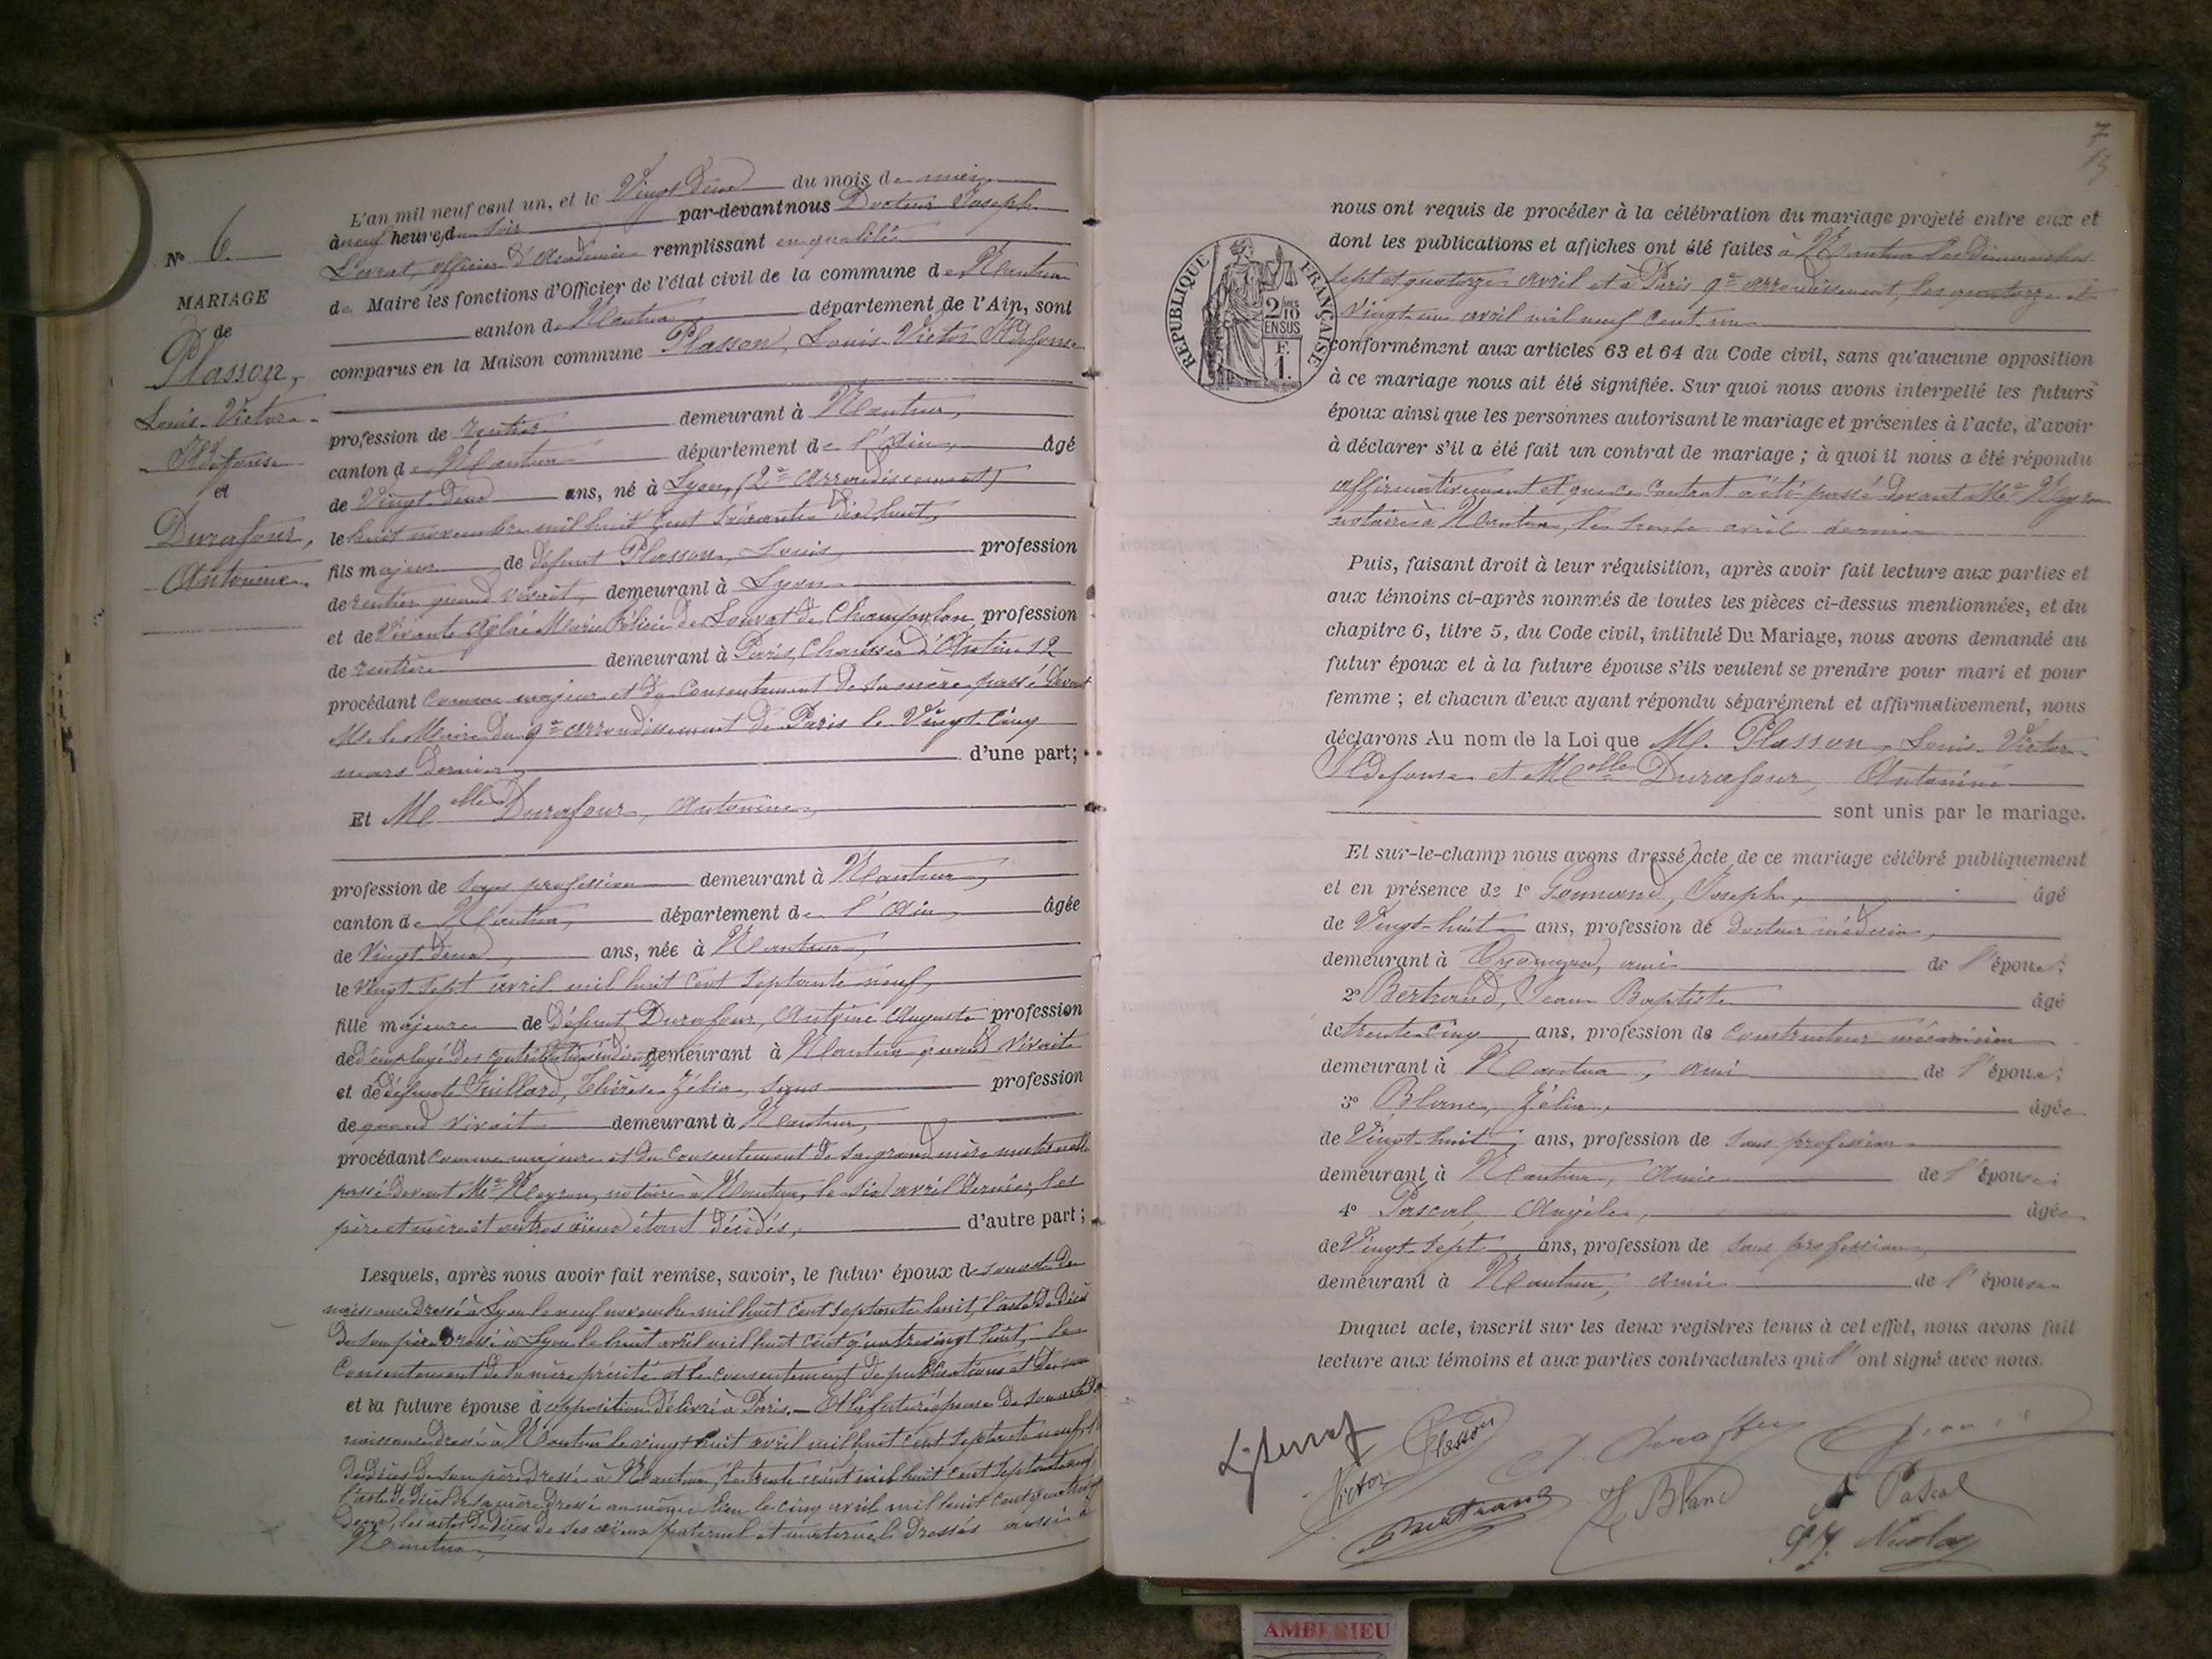 N° 6.
MARIAGE
de
Plasson,
Louis-Victor-
Ildefonse
et
Durafour,
Antonine.
L'an mil neuf cent un, et le Vingt deux du mois de mai
à neuf heures du soir par-devant nous Docteur Joseph
officier d'Académie remplissant en qualité
de Maire les fonctions d'Officier de l'état civil de la commune de Nantua
canton de Nantua département de l'Ain, sont
comparus en la Maison commune Plasson, Louis Victor Ildefonse
profession de rentier demeurant à Nantua,
canton de Nantua département de l'Ain, âgé
de Vingt deux ans, né à Lyon, (2e arrondissement)
le huit novembre mil huit cent soixante dix huit,
fils majeur de défunt Plasson, Louis, profession
de rentier quand vivait, demeurant à Lyon
et de vivante Aglaé Marie Félicie de Louvat de Champollon, profession
de rentière demeurant à Paris, Chaussée d'Antin 12
procédant comme majeur et du consentement de sa mère passé devant
M. le Maire du 9e arrondissement de Paris le Vingt cinq
mars dernier, d'une part;
Et Melle Durafour, Antonine,
profession de sans profession demeurant à Nantua,
canton de Nantua, département de l'Ain, âgée
de Vingt deux, ans, née à Nantua,
le vingt sept avril mil huit cent septante neuf,
fille majeure de défunt Durafour, Antoine Auguste profession
de d'employé des contributions indirectes demeurant à Nantua quand vivait
et de défunte Juillard, Thérèse Zélie, sans profession
de quand vivait demeurant à Nantua,
procédant comme majeure et du consentement de sa grand mère maternelle
passé devant Me Meyron, notaire à Nantua, le six avril dernier, les
père et mère et autres aïeux étant décédés, d'autre part;
Lesquels, après nous avoir fait remise, savoir, le futur époux de son acte de
naissance dressé à Lyon le neuf novembre mil huit cent septante huit, l'acte de décès
de son père dressé à Lyon le huit avril mil huit cent quatre vingt huit, le
consentement de sa mère précité et le consentement de publications et de non
et la future épouse d opposition délivré à Paris. — Et la future épouse de son acte de
naissance dressé à Nantua le vingt huit avril mil huit cent septante neuf,
de décès de son père dressé à Nantua, le trente mil huit cent septante neuf
l'acte de décès de sa mère dressé au même lieu le cinq avril mil huit cent quatre vingt
deux, les actes de décès de ses aïeux paternel et maternels dressés aussi à
Nantua,
7
13
RÉPUBLIQUE FRANÇAISE
2/10 MES
EN SUS
F.
1.
nous ont requis de procéder à la célébration du mariage projeté entre eux et
dont les publications et affiches ont été faites à Nantua les dimanches
sept et quatorze avril et à Paris 9e arrondissement, les quatorze et
Vingt un avril mil neuf cent un
conformément aux articles 63 et 64 du Code civil, sans qu'aucune opposition
à ce mariage nous ait été signifiée. Sur quoi nous avons interpellé les futurs
époux ainsi que les personnes autorisant le mariage et présentes à l'acte, d'avoir
à déclarer s'il a été fait un contrat de mariage ; à quoi il nous a été répondu
affirmativement et que ce contrat a été passé devant Me Meyron
notaire à Nantua, le trente avril dernier
Puis, faisant droit à leur réquisition, après avoir fait lecture aux parties et
aux témoins ci-après nommés de toutes les pièces ci-dessus mentionnées, et du
chapitre 6, titre 5, du Code civil, intitulé Du Mariage, nous avons demandé au
futur époux et à la future épouse s'ils veulent se prendre pour mari et pour
femme ; et chacun d'eux ayant répondu séparément et affirmativement, nous
déclarons Au nom de la Loi que M. Plasson, Louis-Victor-
Ildefonse et Melle Durafour, Antonine
sont unis par le mariage.
Et sur-le-champ nous avons dressé acte de ce mariage célébré publiquement
et en présence de 1° Gonnand, Joseph, âgé
de Vingt-huit ans, profession de docteur médecin,
demeurant à Oyonnax, ami de l'époux;
2° Bertrand, Jean Baptiste âgé
de trente cinq ans, profession de constructeur mécanicien
demeurant à Nantua, ami de l'époux;
3° Blanc, Zélie, âgée
de Vingt-huit, ans, profession de sans profession
demeurant à Nantua, amie de l'épouse;
4° Pascal Angèle, âgée
de Vingt-sept ans, profession de sans profession,
demeurant à Nantua, amie de l'épouse
Duquel acte, inscrit sur les deux registres tenus à cet effet, nous avons fait
lecture aux témoins et aux parties contractantes qui l'ont signé avec nous.
Victor Plasson
Bertrand
Z Blanc
A Pascal
Nicolas
AMBERIEU